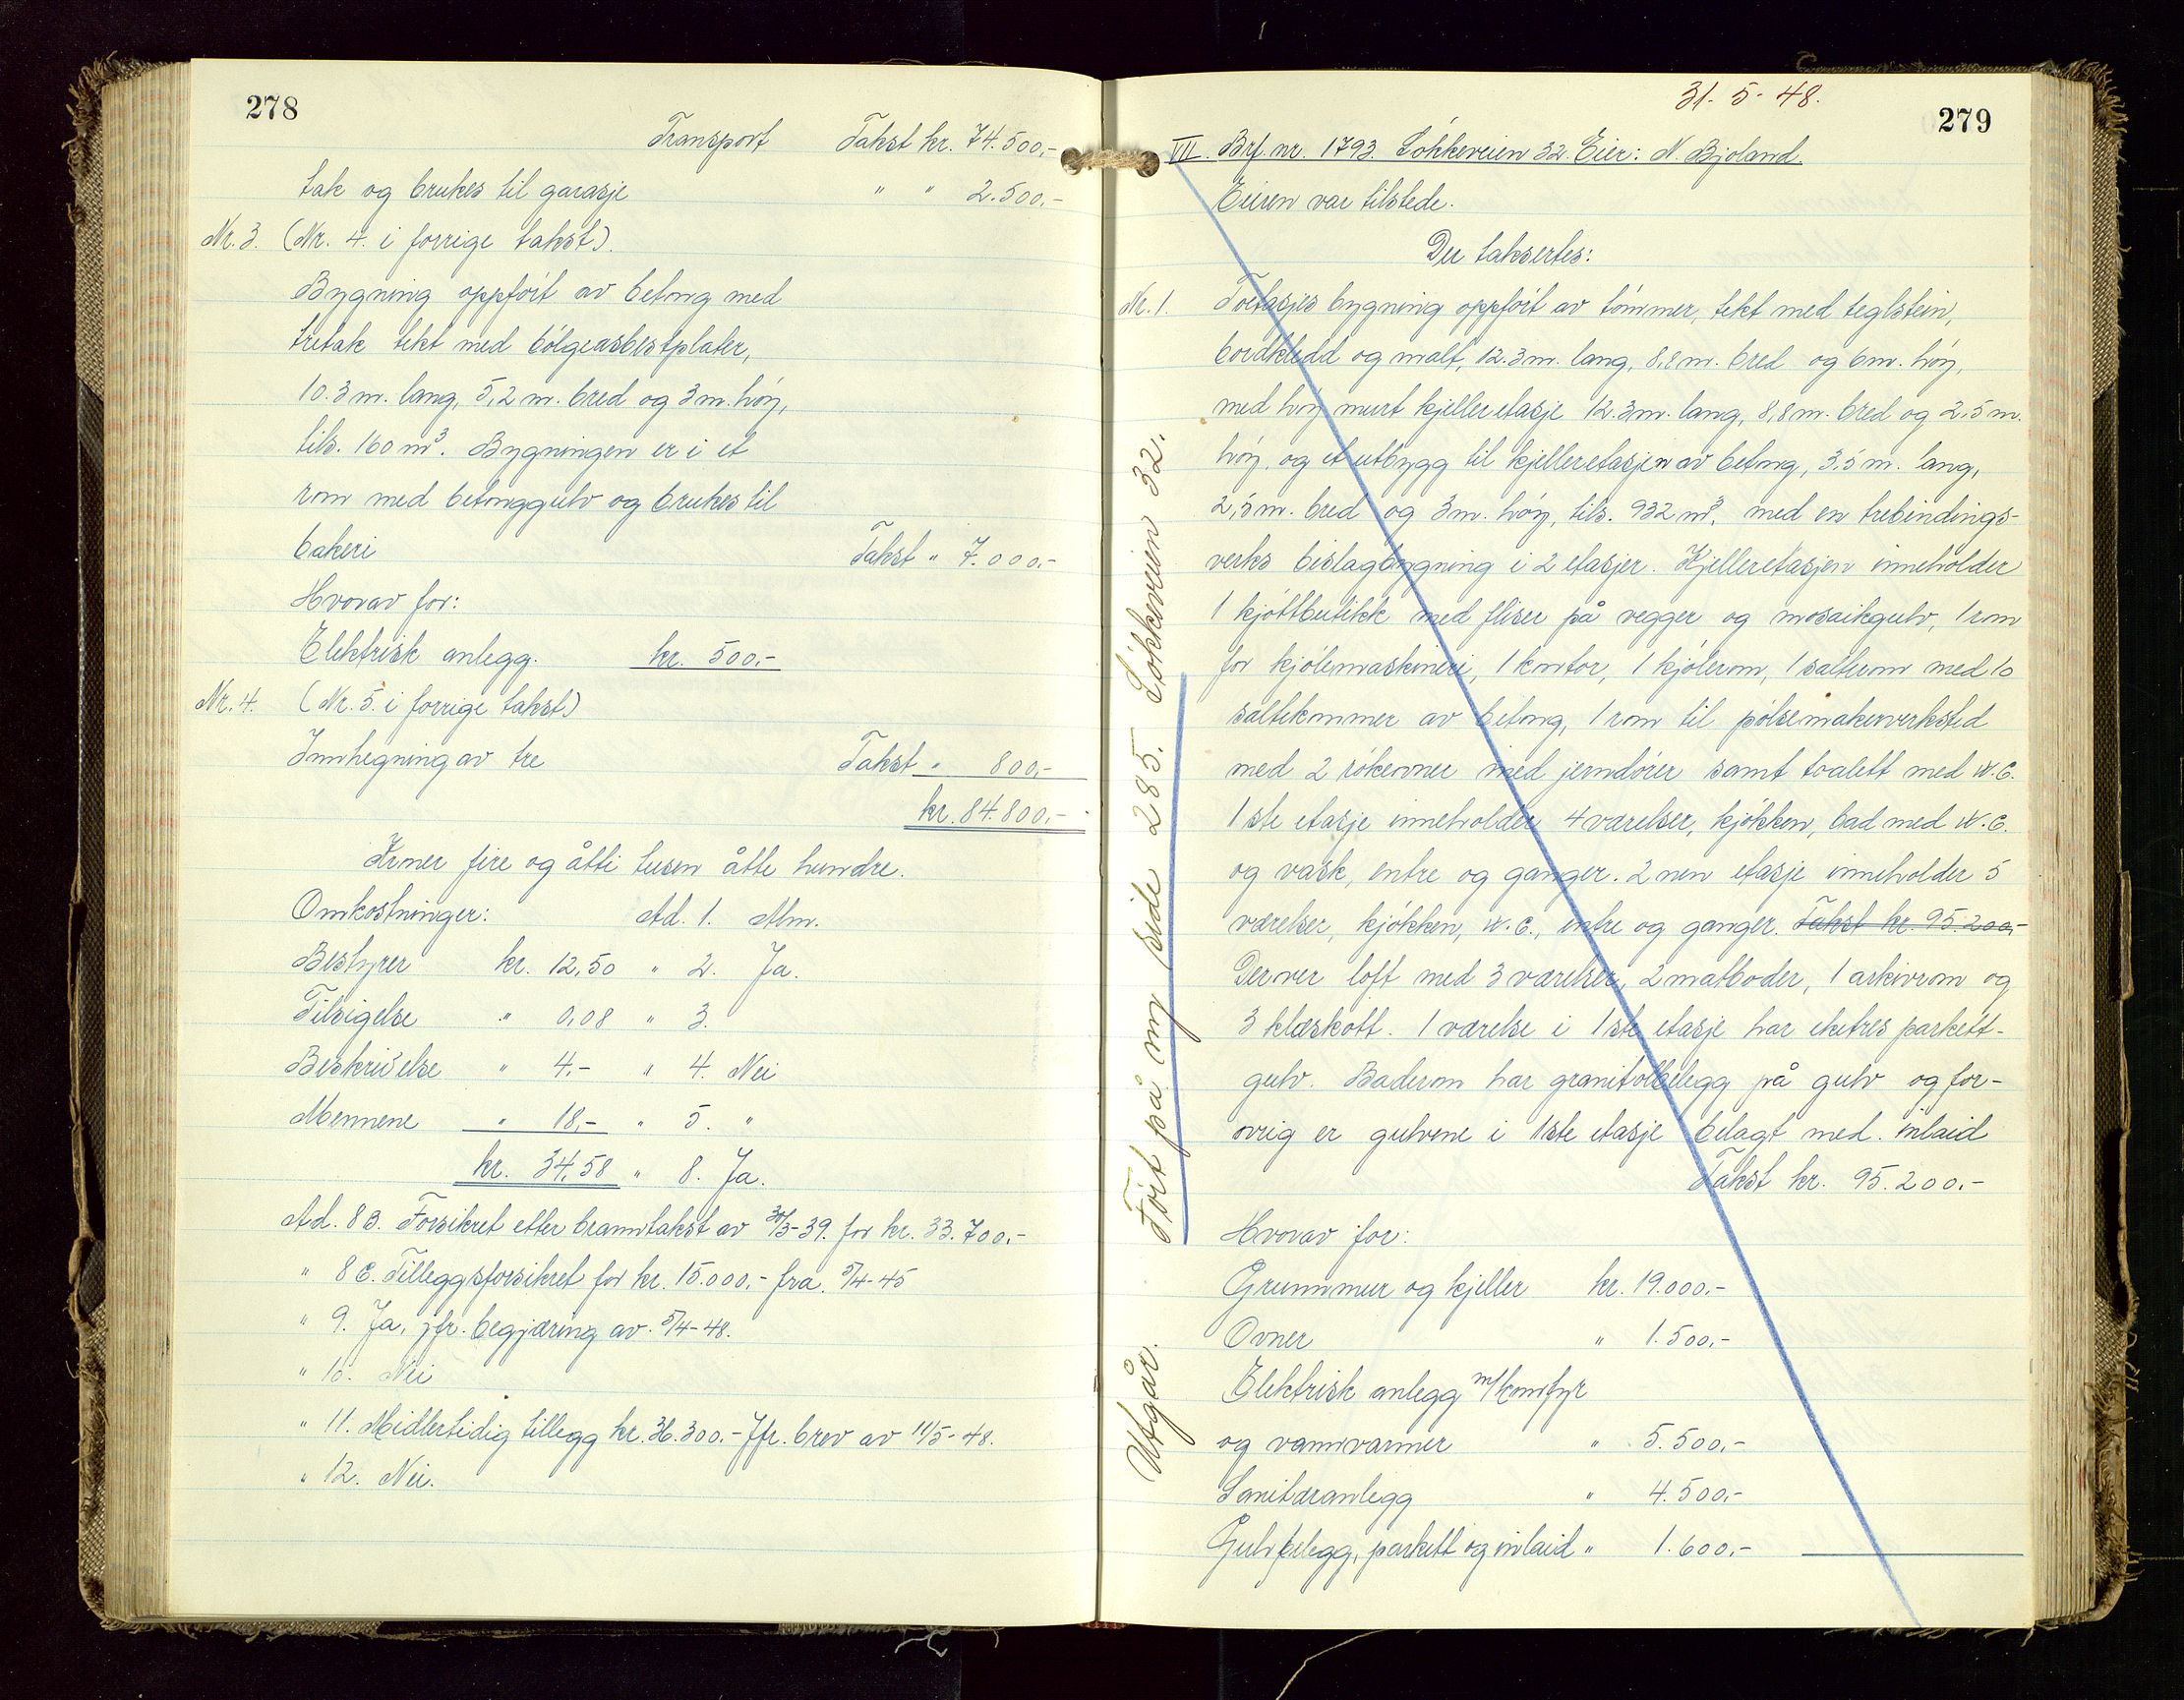 278
Transport Takst kr. 74.500,-
tak og brukes til garasje " " 2.500,-
Nr. 3. (Nr. 4. i forrige takst).
Bygning oppført av betong med
tretak tekt med bölgeasbestplater,
10.3 m. lang, 5,2 m. bred og 3 m. höy,
tils. 160 m³. Bygningen er i et
rom med betonggulv og brukes til
bakeri Takst " 7.000,-
Hvorav for:
Elektrisk anlegg. kr. 500,-
Nr. 4. (Nr. 5. i forrige takst)
Innhegning av tre Takst " 800,-
kr. 84.800,-
Kroner fire og åtti tusen åtte hundre.
Omkostninger: Ad. 1. Alm.
Bestyrer kr. 12,50 " 2. Ja.
Tilsigelse " 0,08 " 3.
Beskrivelse " 4.- " 4. Nei
Mennene " 18,- " 5. "
kr. 34,58 " 8. Ja.
Ad. 8 B. Forsikret etter branntakst av 30/3-39. for kr. 33.700,-
" 8 C. Tilleggsforsikret for kr. 15.000,- fra. 5/4-45
" 9. Ja, jfr. begjæring av. 5/4-48.
" 10. Nei
" 11. Midlertidig tillegg kr. 36.300,- Jfr. brev av 11/5-48.
" 12. Nei.
31. 5- 48.
279
VII. Brf. nr. 1793. Lökkeveien 32. Eier: N. Bjoland.
Eieren var tilstede.
Der taksertes:
Nr. 1. Toetasjes bygning oppfört av tömmer, tekt med teglstein,
bordkledd og malt, 12.3 m. lang, 8,8 m. bred og 6 m. höy,
med höy murt kjelleretasje 12.3 m. lang, 8,8 m. bred og 2,5 m.
höy, og et utbygg til kjelleretasjen av betong, 3,5 m. lang,
2,5 m. bred og 3 m. höy, tils. 932 m³, med en trebindings-
verks bislagbygning i 2 etasjer. Kjelleretasjen inneholder
1 kjöttbutikk med fliser på vegger og mosaikgulv, 1 rom
for kjölemaskineri, 1 kontor, 1 kjölerom, 1 salterom med 10
saltekummer av betong, 1 rom til pölsemakerverksted
med 2 rökeovner med jerndörer samt toalett med W.C.
1ste etasje inneholder 4 værelser, kjökken, bad med W.C.
og vask, entre og ganger. 2nen etasje inneholder 5
værelser, kjökken, W.C., entre og ganger. Takst kr. 95.200,-
Derover loft med 3 værelser, 2 matboder, 1 arkivrom og
3 kleskott. 1 værelse i 1ste etasje har eketres parkett-
gulv. Baderom har granitolbelegg på gulv og for-
övrig er gulvene i 1ste etasje belagt med. inlaid
Takst kr. 95.200.-
Hvorav for:
Grunnmur og kjeller kr. 19.000,-
Ovner " 1.500,-
Elektrisk anlegg m/komfyr
og vannvarmer " 5.500,-
Sanitæranlegg " 4.500,-
Gulvbelegg, parkett og inlaid " 1.600,-
Utgår. Fört på ny side 285. Lökkeveien 32.